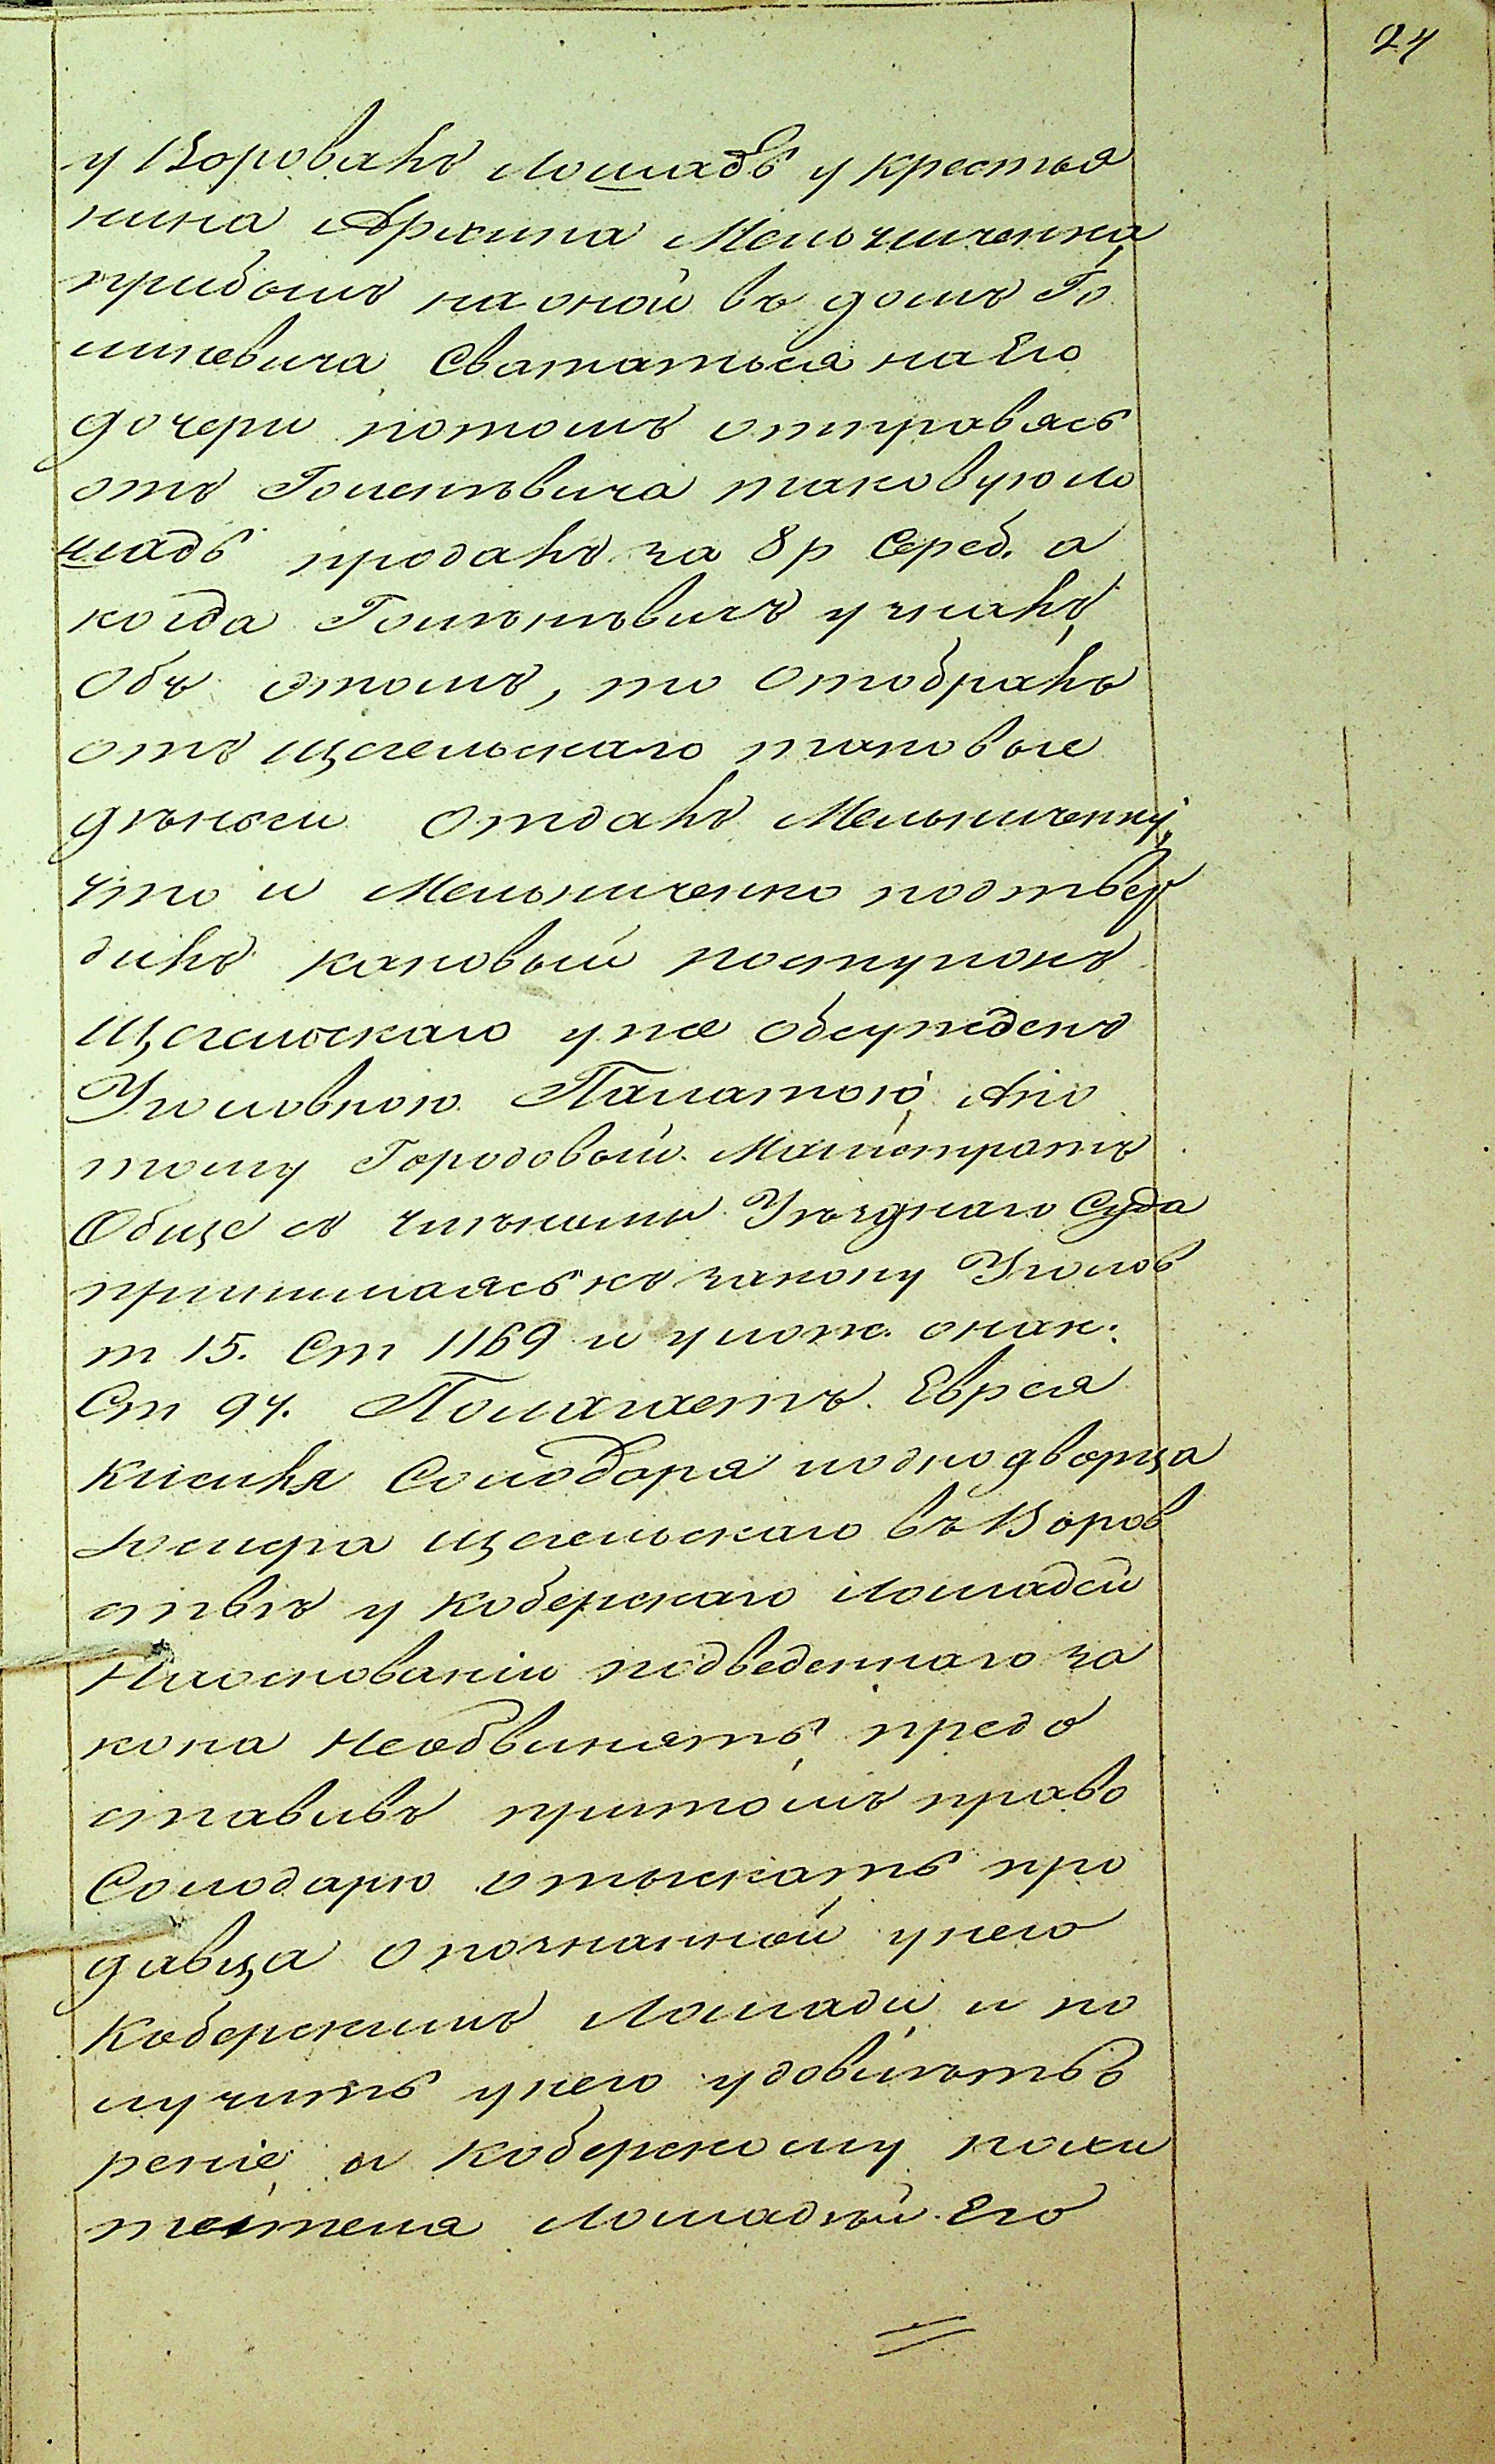 24
у Воровалъ лошадь у крестья
нина Архипа Мельниченка,
прибылъ на оной въ домъ Го
линевича Свататься на Его
дочери потомъ отправясь
отъ Голеневича таковую ло
шадь продалъ за 8 р Сереб. а
когда Голѣнѣвичъ узналъ,
Объ этомъ, то Отобралъ
отъ Щегельскаго таковые
дѣньги Отдалъ Мельниченку,
что и Мельниченко подтвер
дилъ каковый поступокъ
Щегельскаго уже обсужденъ
Уголовною Палатою, Апо
тому Городовый Магистратъ
Обще съ члѣномъ Уѣзднаго Суда
принимаясь къ закону Уголов
т 15. Ст 1169 и улож. онак:
Ст 94. Полагаетъ Еврея
Кисиля Солодаря иоднодворца
Іосифа Щегельскаго въ Воров
ствѣ у Коберскаго лошадей
Наоснованіи подведеннаго за
кона Необвинять, предо
ставивъ притомъ право
Солодарю отыскать про
давца Опознанной унего
Коберскимъ Лошади, и по
лучить унего удовлѣтво
реніе, а Коберскому похи
тителя Лошадѣй Его